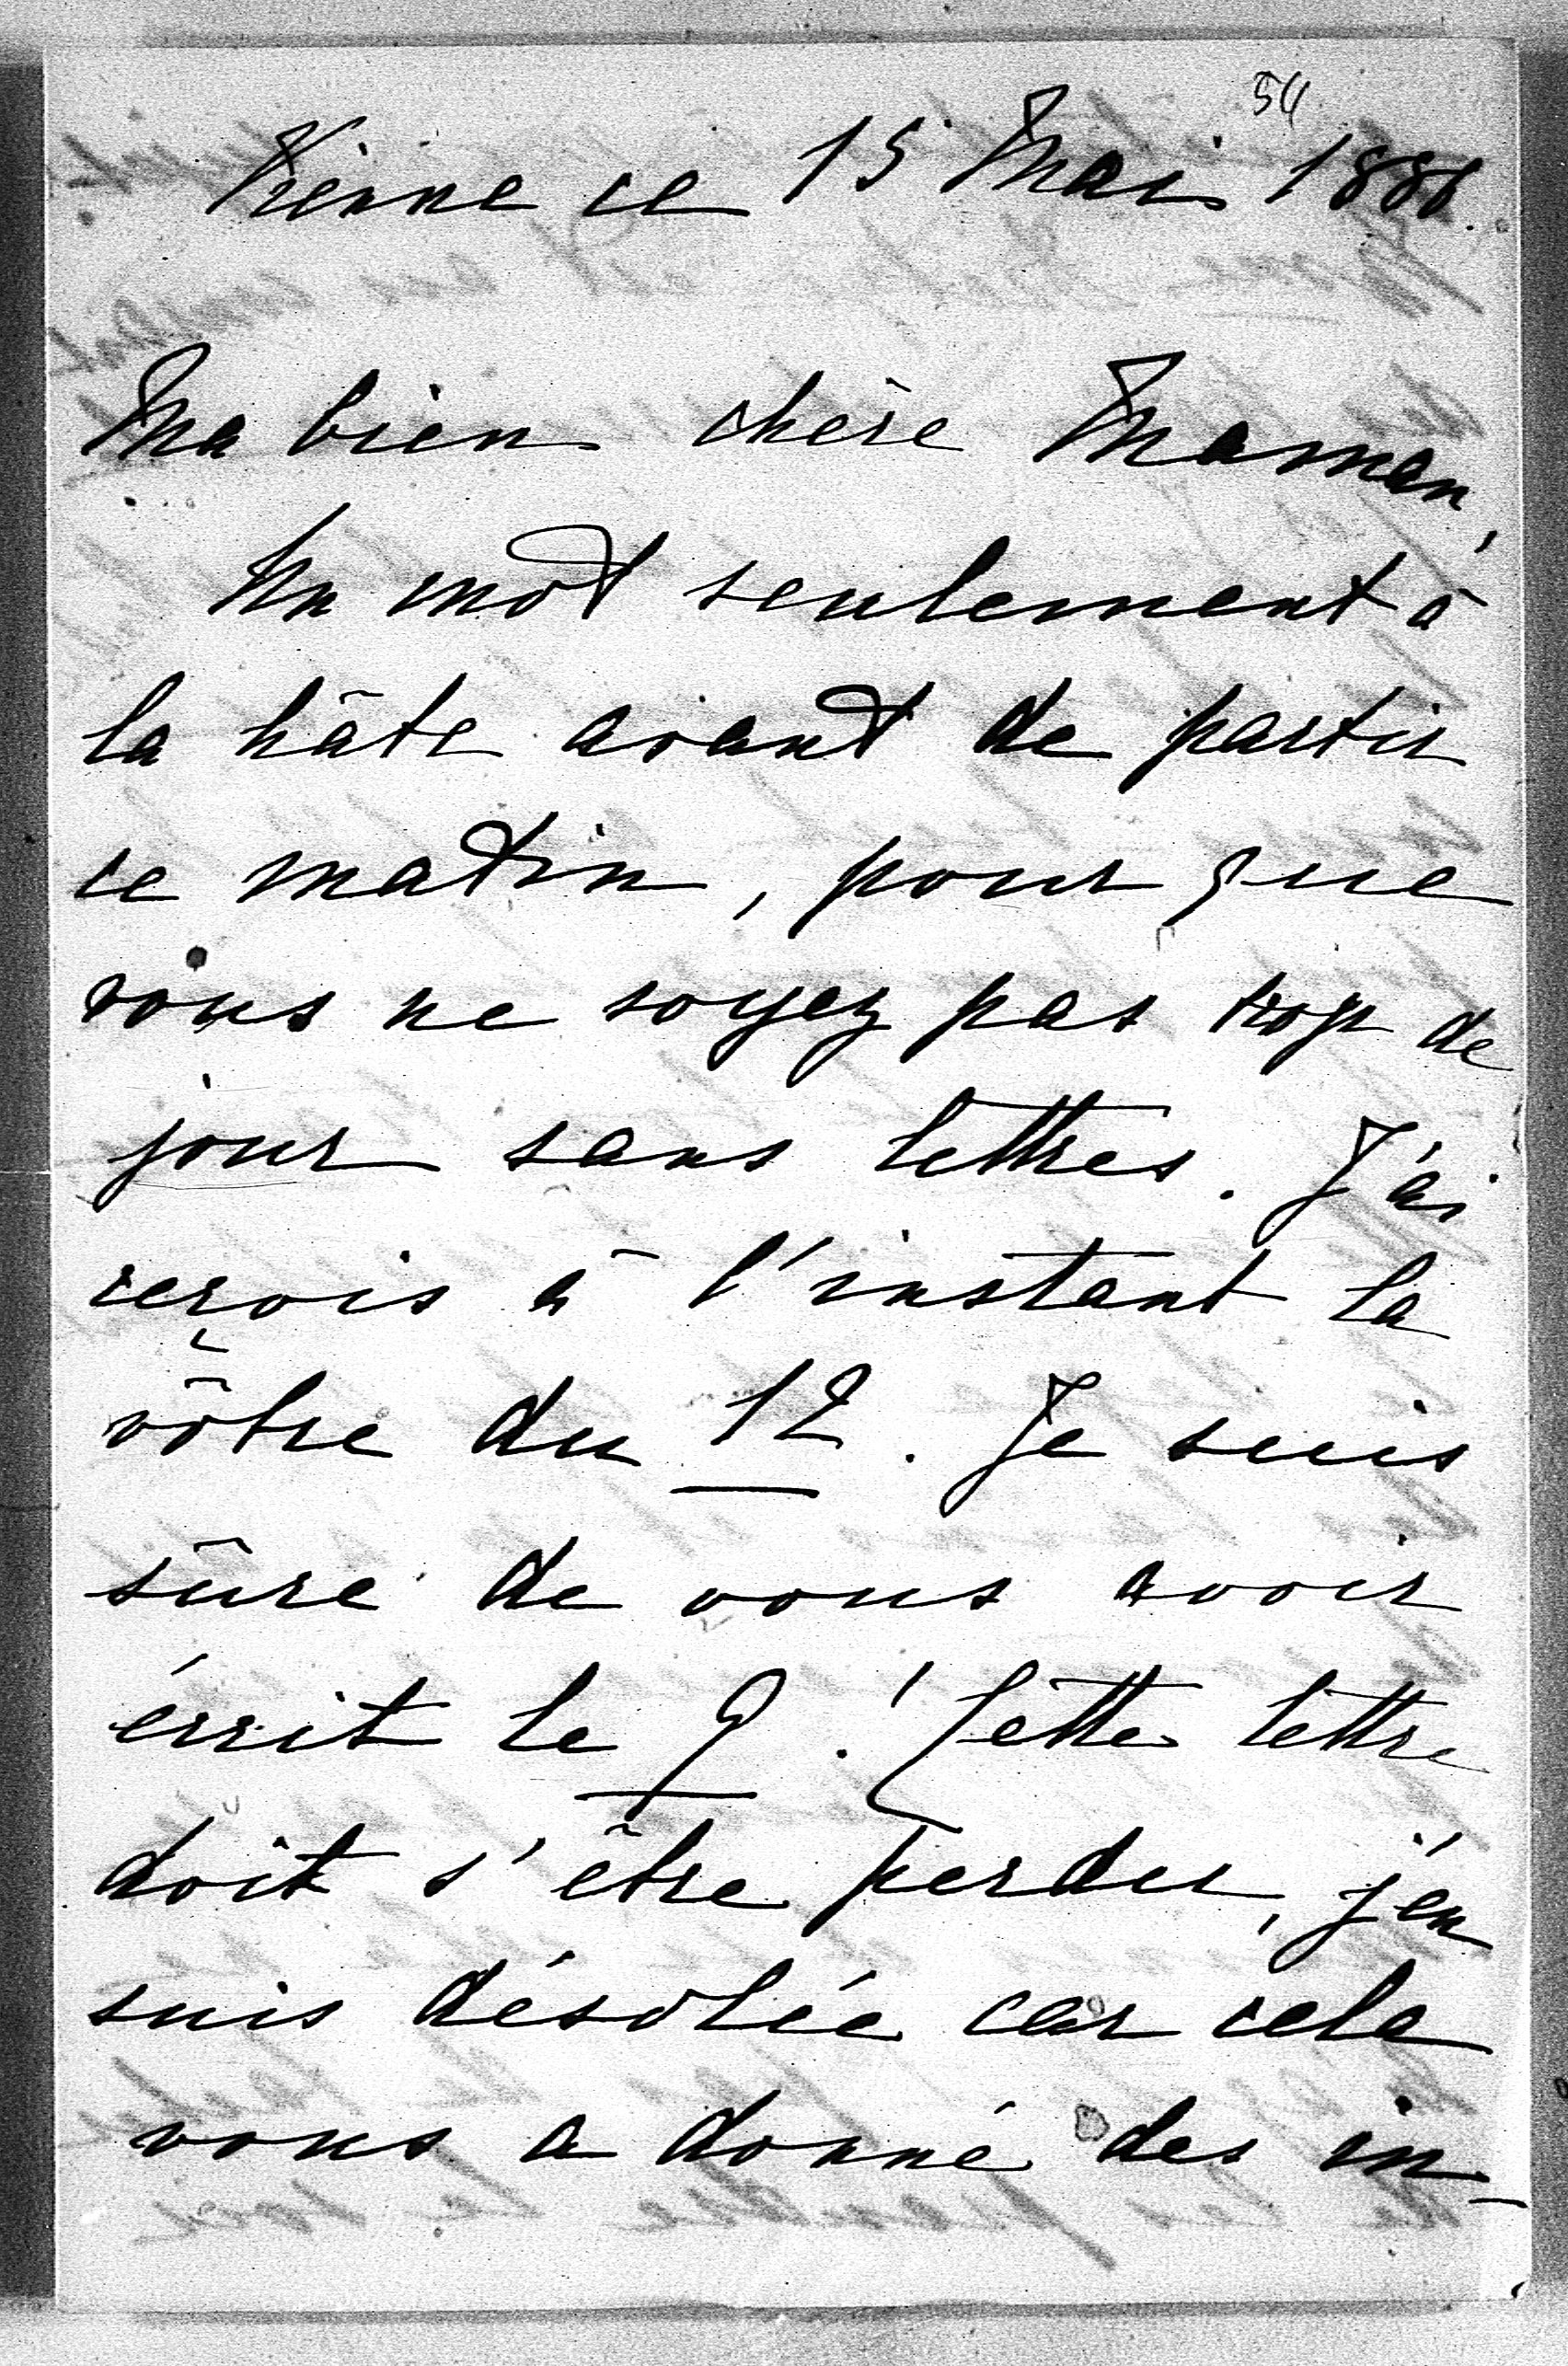 54
Vienne ce 15 Mai 1888.
Ma bien chère Maman,
Un mot seulement à
la hâte avant de partir
ce matin, pour que
vous ne soyez pas trop de
jour sans lettres. J'ai
reçois à l'instant la
vôtre du 12. Je suis
sûre de vous avoir
écrit le 9! Cette lettre
doit s'être perdu, j'en
suis désolée car cela
vous a donné des in-